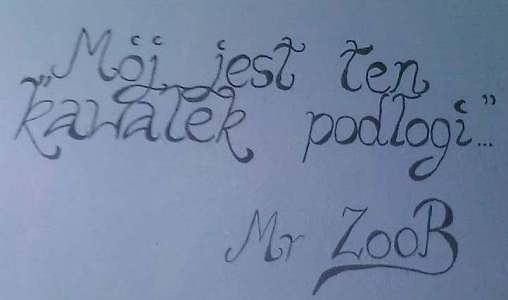 „Mój jest ten
kawałek podłogi”...
Mr ZooB